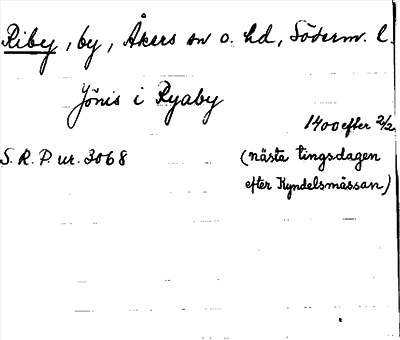 Riby, by, Åkers sn o. hd, Söderm. l.
Jönis i Ryaby
1400 efter 2/2
S. R. P. nr. 3068 (nästa tingsdagen
efter Kyndelsmässan)